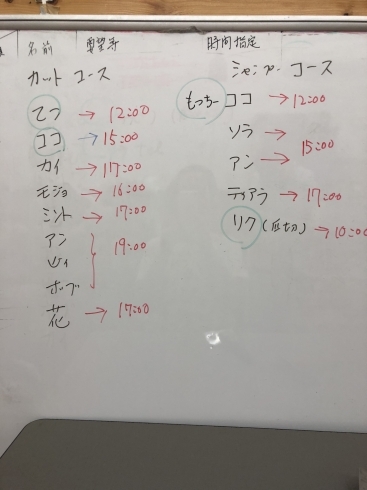 名前 要望等 時間指定
カット コース
てつ → 12:00
ココ → 15:00
カイ → 17:00
モジョ → 16:00
ミント → 17:00
アン
19:00
ボブ
花 → 17:00
シャンプー コース
もっちー ココ → 12:00
ソラ →
アン →
15:00
ティアラ → 17:00
リク (爪切) → 10:00